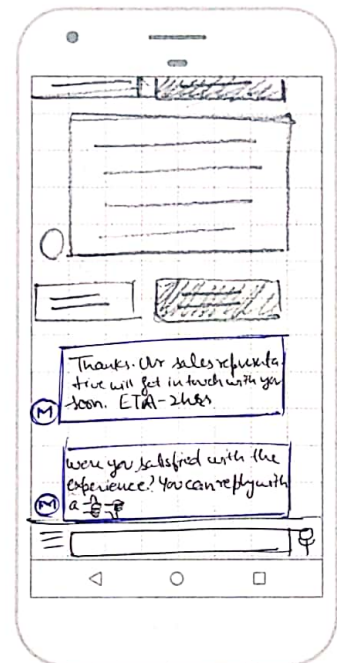 Thanks. Our sales representa
tive will get in touch with you
soon. ETA-2hrs
M
were you satisfied with the
experience? You can reply with
M
a 👍👎